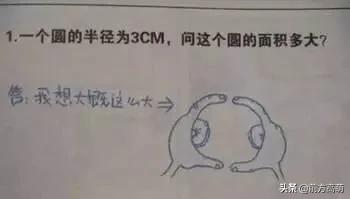 1.一个圆的半径为3CM，问这个圆的面积多大？
答：我想大概这么大⇒
头条 @前方高萌